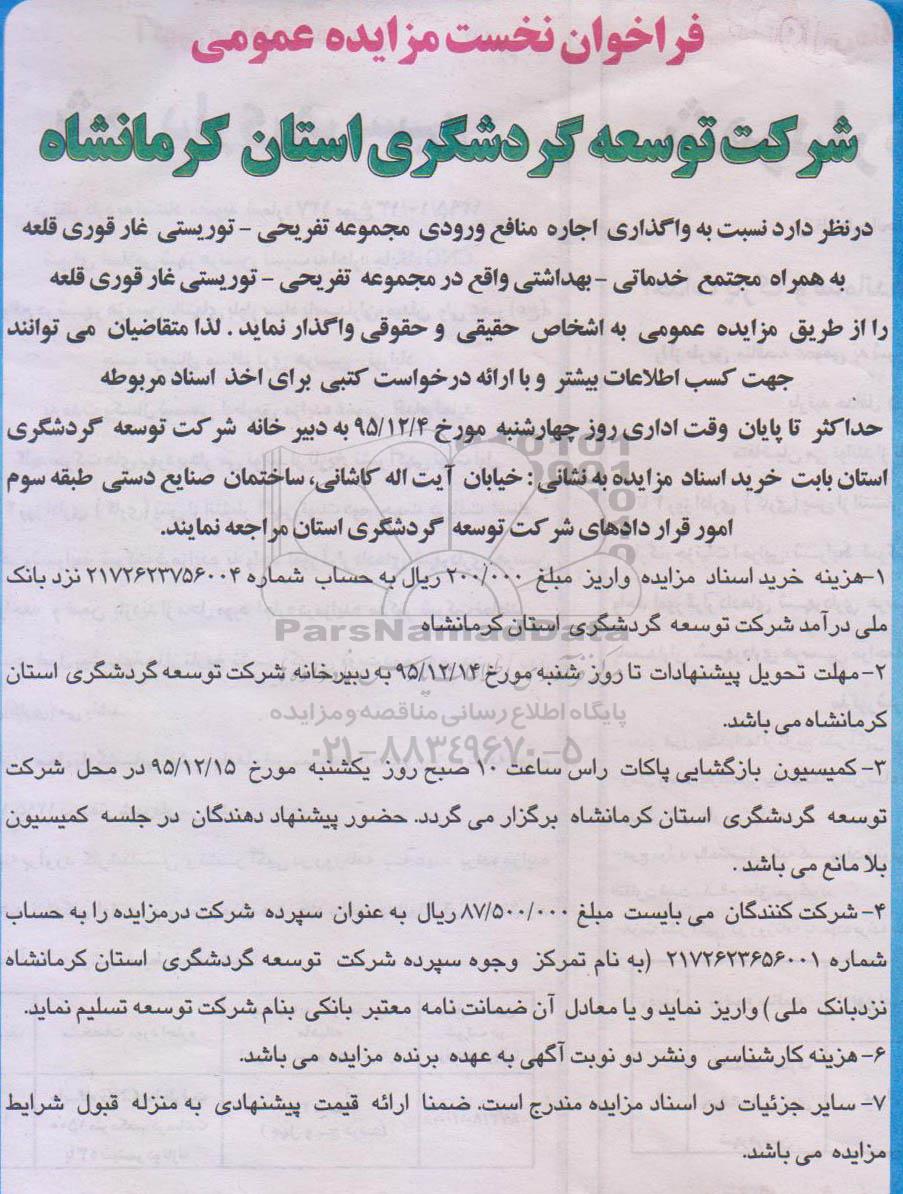 فراخوان نخست مزایده عمومی
شرکت توسعه گردشگری استان کرمانشاه
درنظر دارد نسبت به واگذاری اجاره منافع ورودی مجموعه تفریحی - توریستی غار قوری قلعه
به همراه مجتمع خدماتی - بهداشتی واقع در مجموعه تفریحی - توریستی غار قوری قلعه
را از طریق مزایده عمومی به اشخاص حقیقی و حقوقی واگذار نماید . لذا متقاضیان می توانند
جهت کسب اطلاعات بیشتر و با ارائه درخواست کتبی برای اخذ اسناد مربوطه
حداکثر تا پایان وقت اداری روز چهارشنبه مورخ ۹۵/۱۲/۴ به دبیر خانه شرکت توسعه گردشگری
استان بابت خرید اسناد مزایده به نشانی : خیابان آیت اله کاشانی، ساختمان صنایع دستی طبقه سوم
امور قرار دادهای شرکت توسعه گردشگری استان مراجعه نمایند.
۱-هزینه خرید اسناد مزایده واریز مبلغ ۲۰۰/۰۰۰ ریال به حساب شماره ۲۱۷۲۶۲۳۷۵۶۰۰۴ نزد بانک
ملی درآمد شرکت توسعه گردشگری استان کرمانشاه
ParsNamadData
۲- مهلت تحویل پیشنهادات تا روز شنبه مورخ ۹۵/۱۲/۱۴ به دبیر خانه شرکت توسعه گردشگری استان
کرمانشاه می باشد.
پایگاه اطلاع رسانی مناقصه و مزایده
۰۲۱-۸۸۳۴۹۶۷۰-۵
۳- کمیسیون بازگشایی پاکات راس ساعت ۱۰ صبح روز یکشنبه مورخ ۹۵/۱۲/۱۵ در محل شرکت
توسعه گردشگری استان کرمانشاه برگزار می گردد. حضور پیشنهاد دهندگان در جلسه کمیسیون
بلا مانع می باشد .
۴- شرکت کنندگان می بایست مبلغ ۸۷/۵۰۰/۰۰۰ ریال به عنوان سپرده شرکت درمزایده را به حساب
شماره ۲۱۷۲۶۲۳۶۵۶۰۰۱ (به نام تمرکز وجوه سپرده شرکت توسعه گردشگری استان کرمانشاه
نزدبانک ملی ) واریز نماید و یا معادل آن ضمانت نامه معتبر بانکی بنام شرکت توسعه تسلیم نماید.
۶- هزینه کارشناسی ونشر دو نوبت آگهی به عهده برنده مزایده می باشد.
۷- سایر جزئیات در اسناد مزایده مندرج است. ضمنا ارائه قیمت پیشنهادی به منزله قبول شرایط
مزایده می باشد.